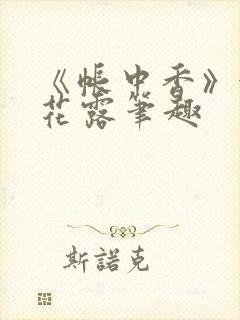 《帳中香》
花露筆趣
斯諾克